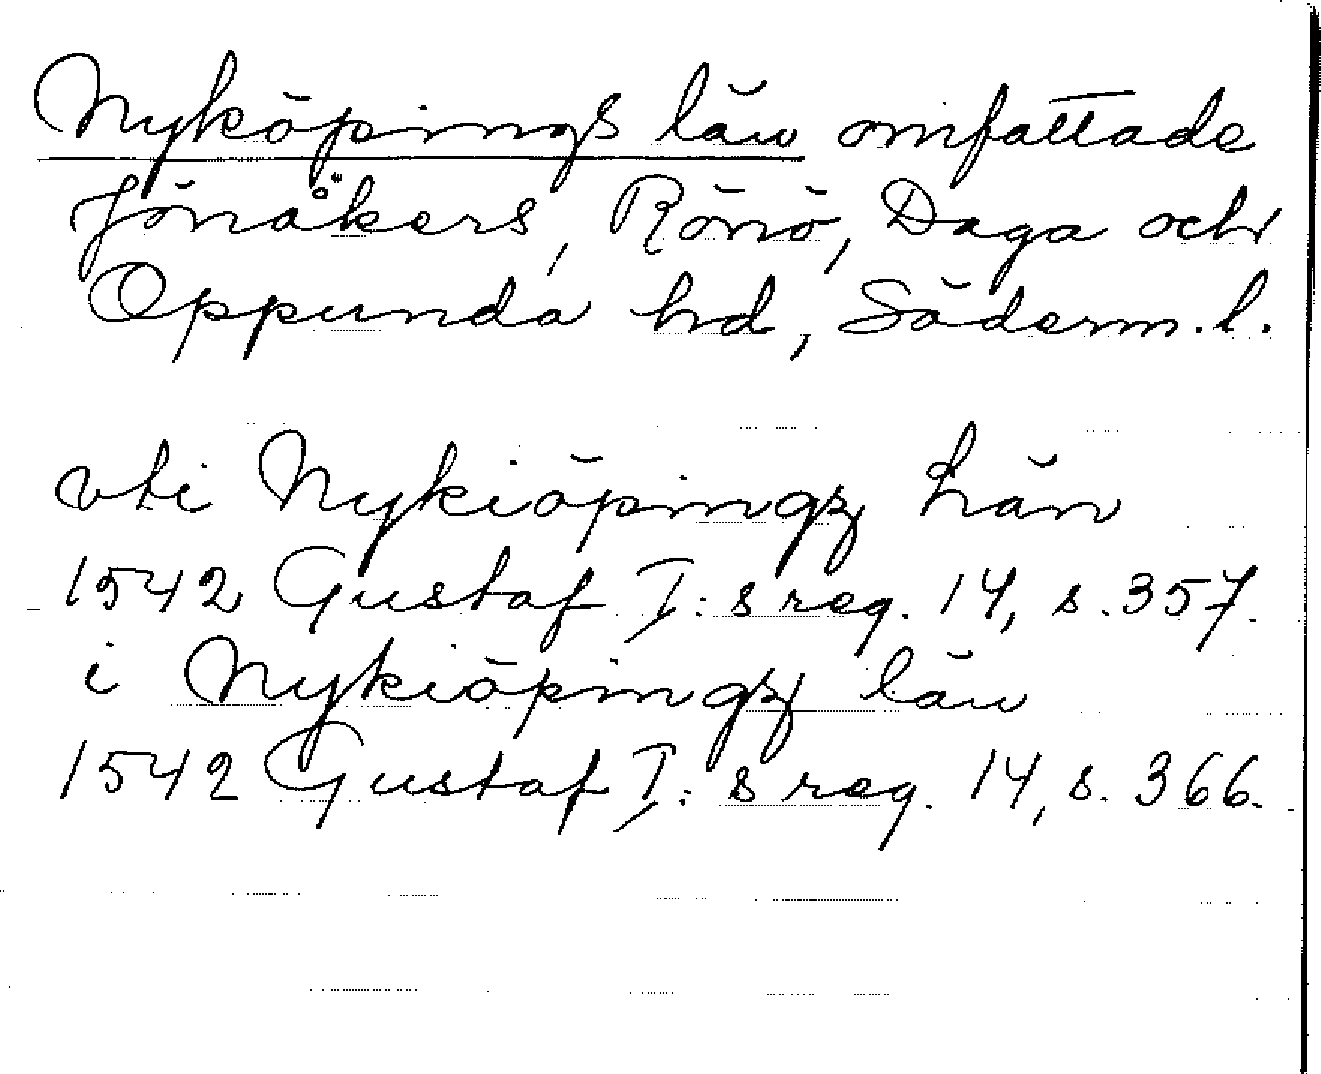 Nyköpings län omfattade
Jönåkers, Rönö, Daga och
Oppunda hd, Söderm. l.
vti Nykiöpingz Län
1542 Gustaf I:s reg. 14, s. 357.
i Nykiöpingz län
1542 Gustaf I:s reg. 14, s. 366.